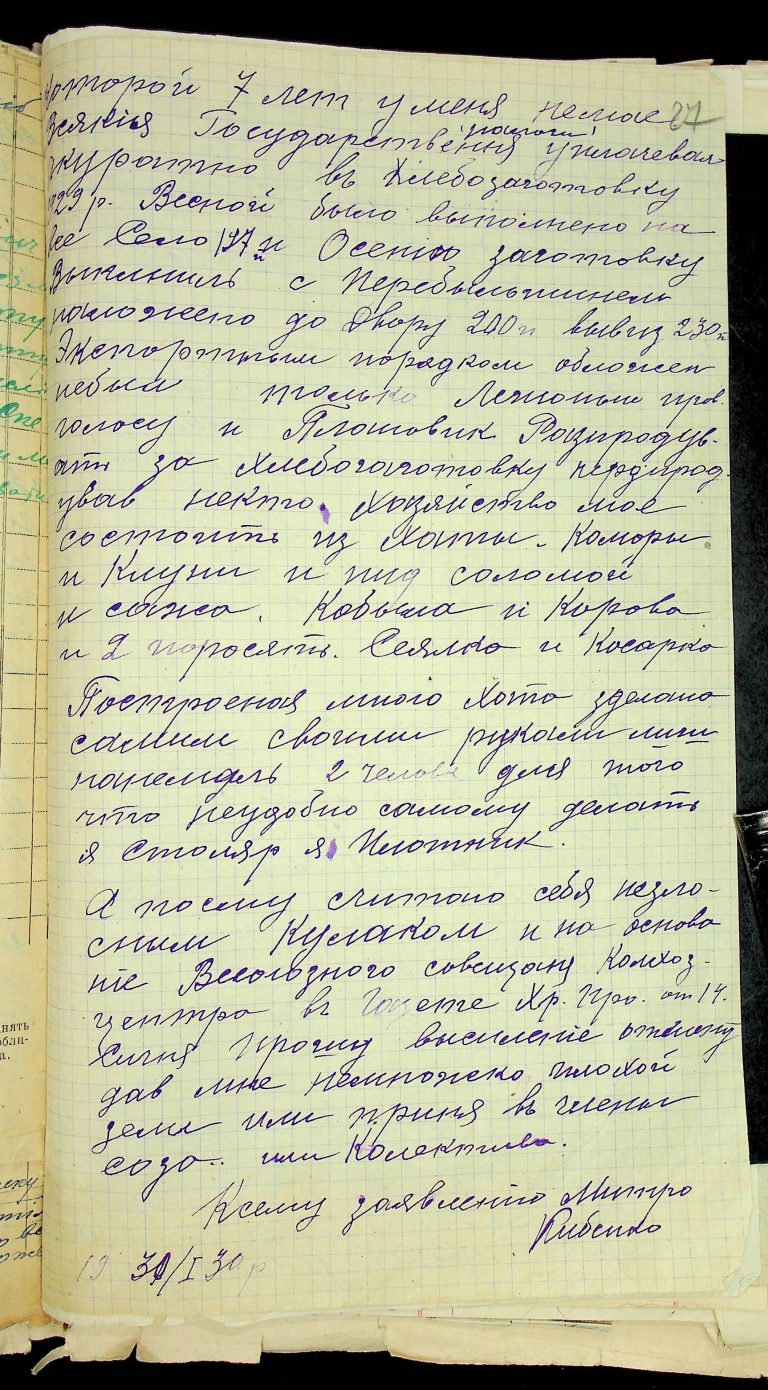 которой 7 лет у меня немае 27
Всякия Государственя налоги уплачевал
акуратно въ Хлебозаготовку
1929 р. Весной было выполнено на
все Село 197 п Осеню заготовку
Выклниль с Перебыльшинем
наложено до двору 200 п вывиз 230 п
Экспортным порядком обложен
небыл только Лешоным
голосу и Плановик Розпродув-
ать за хлебозаготовку
ував некто. Хозяйство мое
состоить из Хаты. Коморы
и Клуни и пид соломой
и сажа. Кобыла и Корова
и 2 поросять. Сеялка и Косарка
Построеная мною Хата зделана
самим своими руками лиш
нанемаль 2 челов для того
что неудобно самому делать
я Столяр я Плотник.
А посему считаю себя незло-
сным Кулаком и на основа
ние Всесоюзного совещаня Колхоз-
центра въ Газете Хр. Про. от 14.
Сичня Прошу высиление отмену
дав мне немножско плохой
земли или приня въ члены
созо.. или Колектива.
Ксему заявлению Митро
Рибенко
19 31/I 30 р